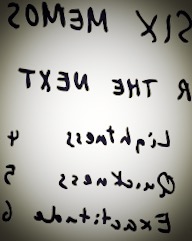 SIX MEMOS
R THE NEXT
Lightness 4
Quickness 5
Exactitude 6